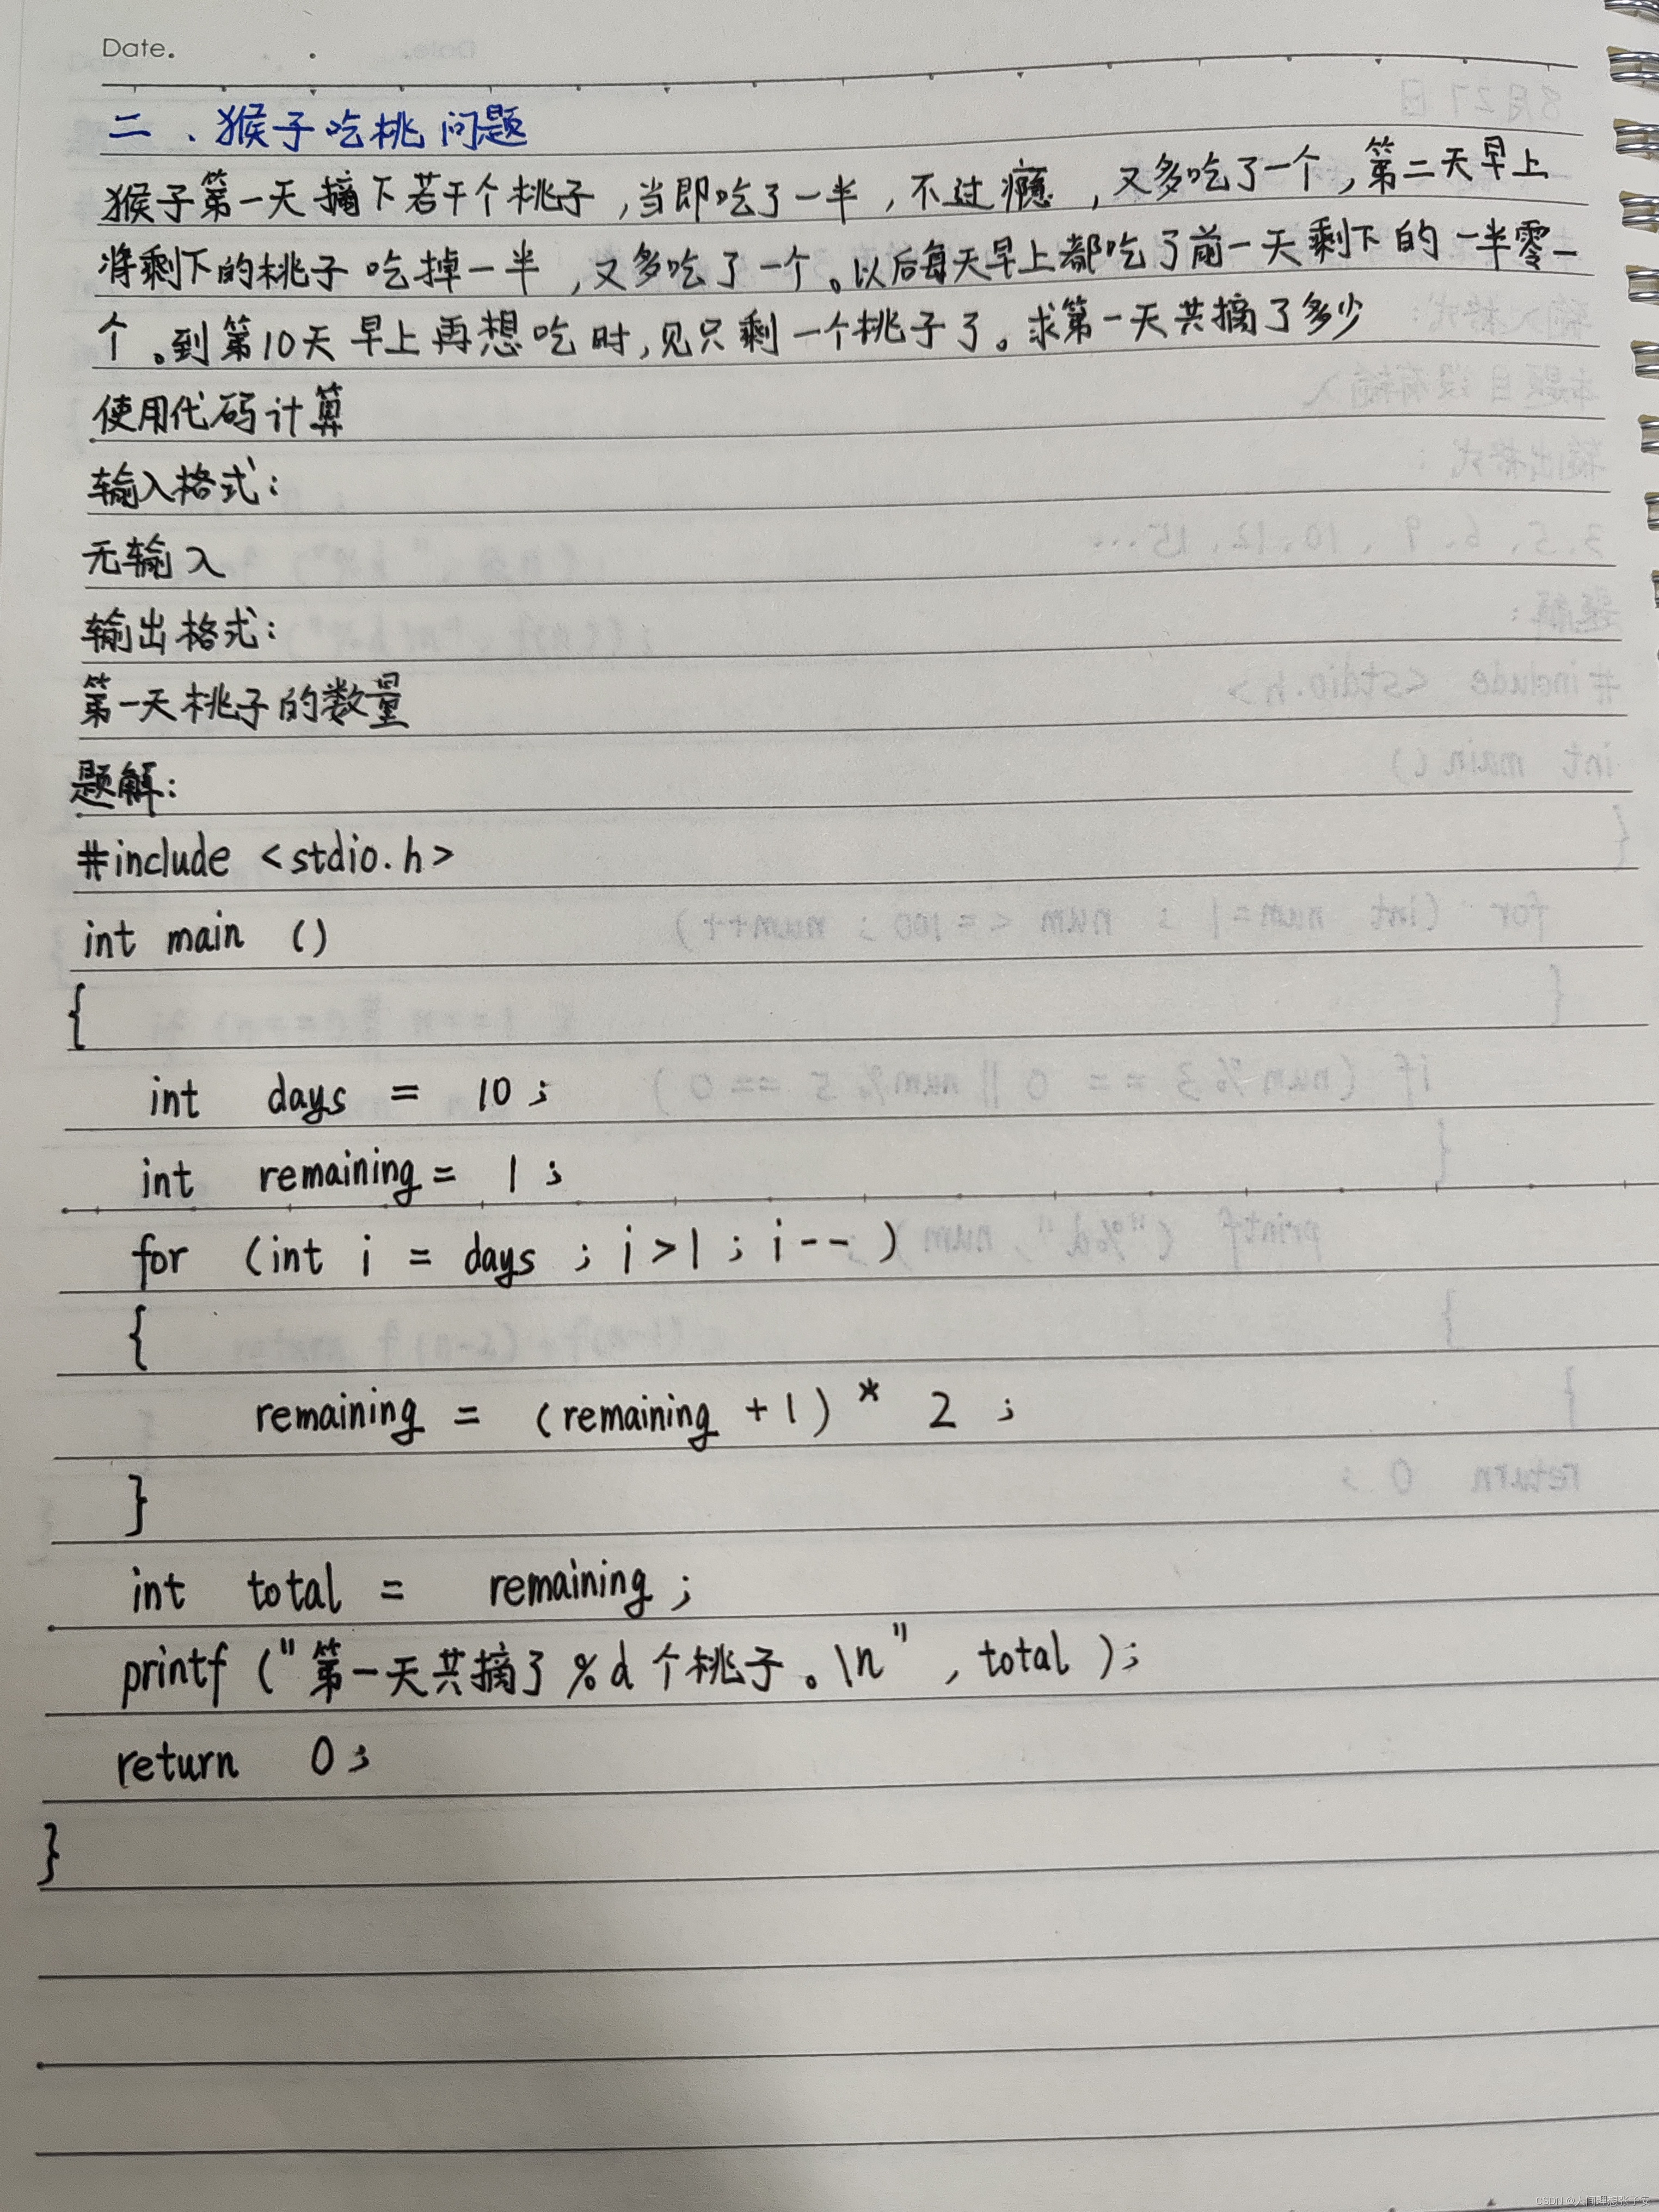 Date.
二、猴子吃桃问题
猴子第一天摘下若干个桃子,当即吃了一半,不过瘾,又多吃了一个,第二天早上
将剩下的桃子吃掉一半,又多吃了一个。以后每天早上都吃了前一天剩下的一半零一
个。到第10天早上再想吃时,见只剩一个桃子了。求第一天共摘了多少
使用代码计算
输入格式:
无输入
输出格式:
第一天桃子的数量
题解:
#include <stdio.h>
int main ()
{
int days = 10;
int remaining = 1;
for (int i = days ; i>1 ; i-- )
{
remaining = (remaining +1) * 2 ;
}
int total = remaining ;
printf ("第一天共摘了%d个桃子。\n" , total );
return 0;
}